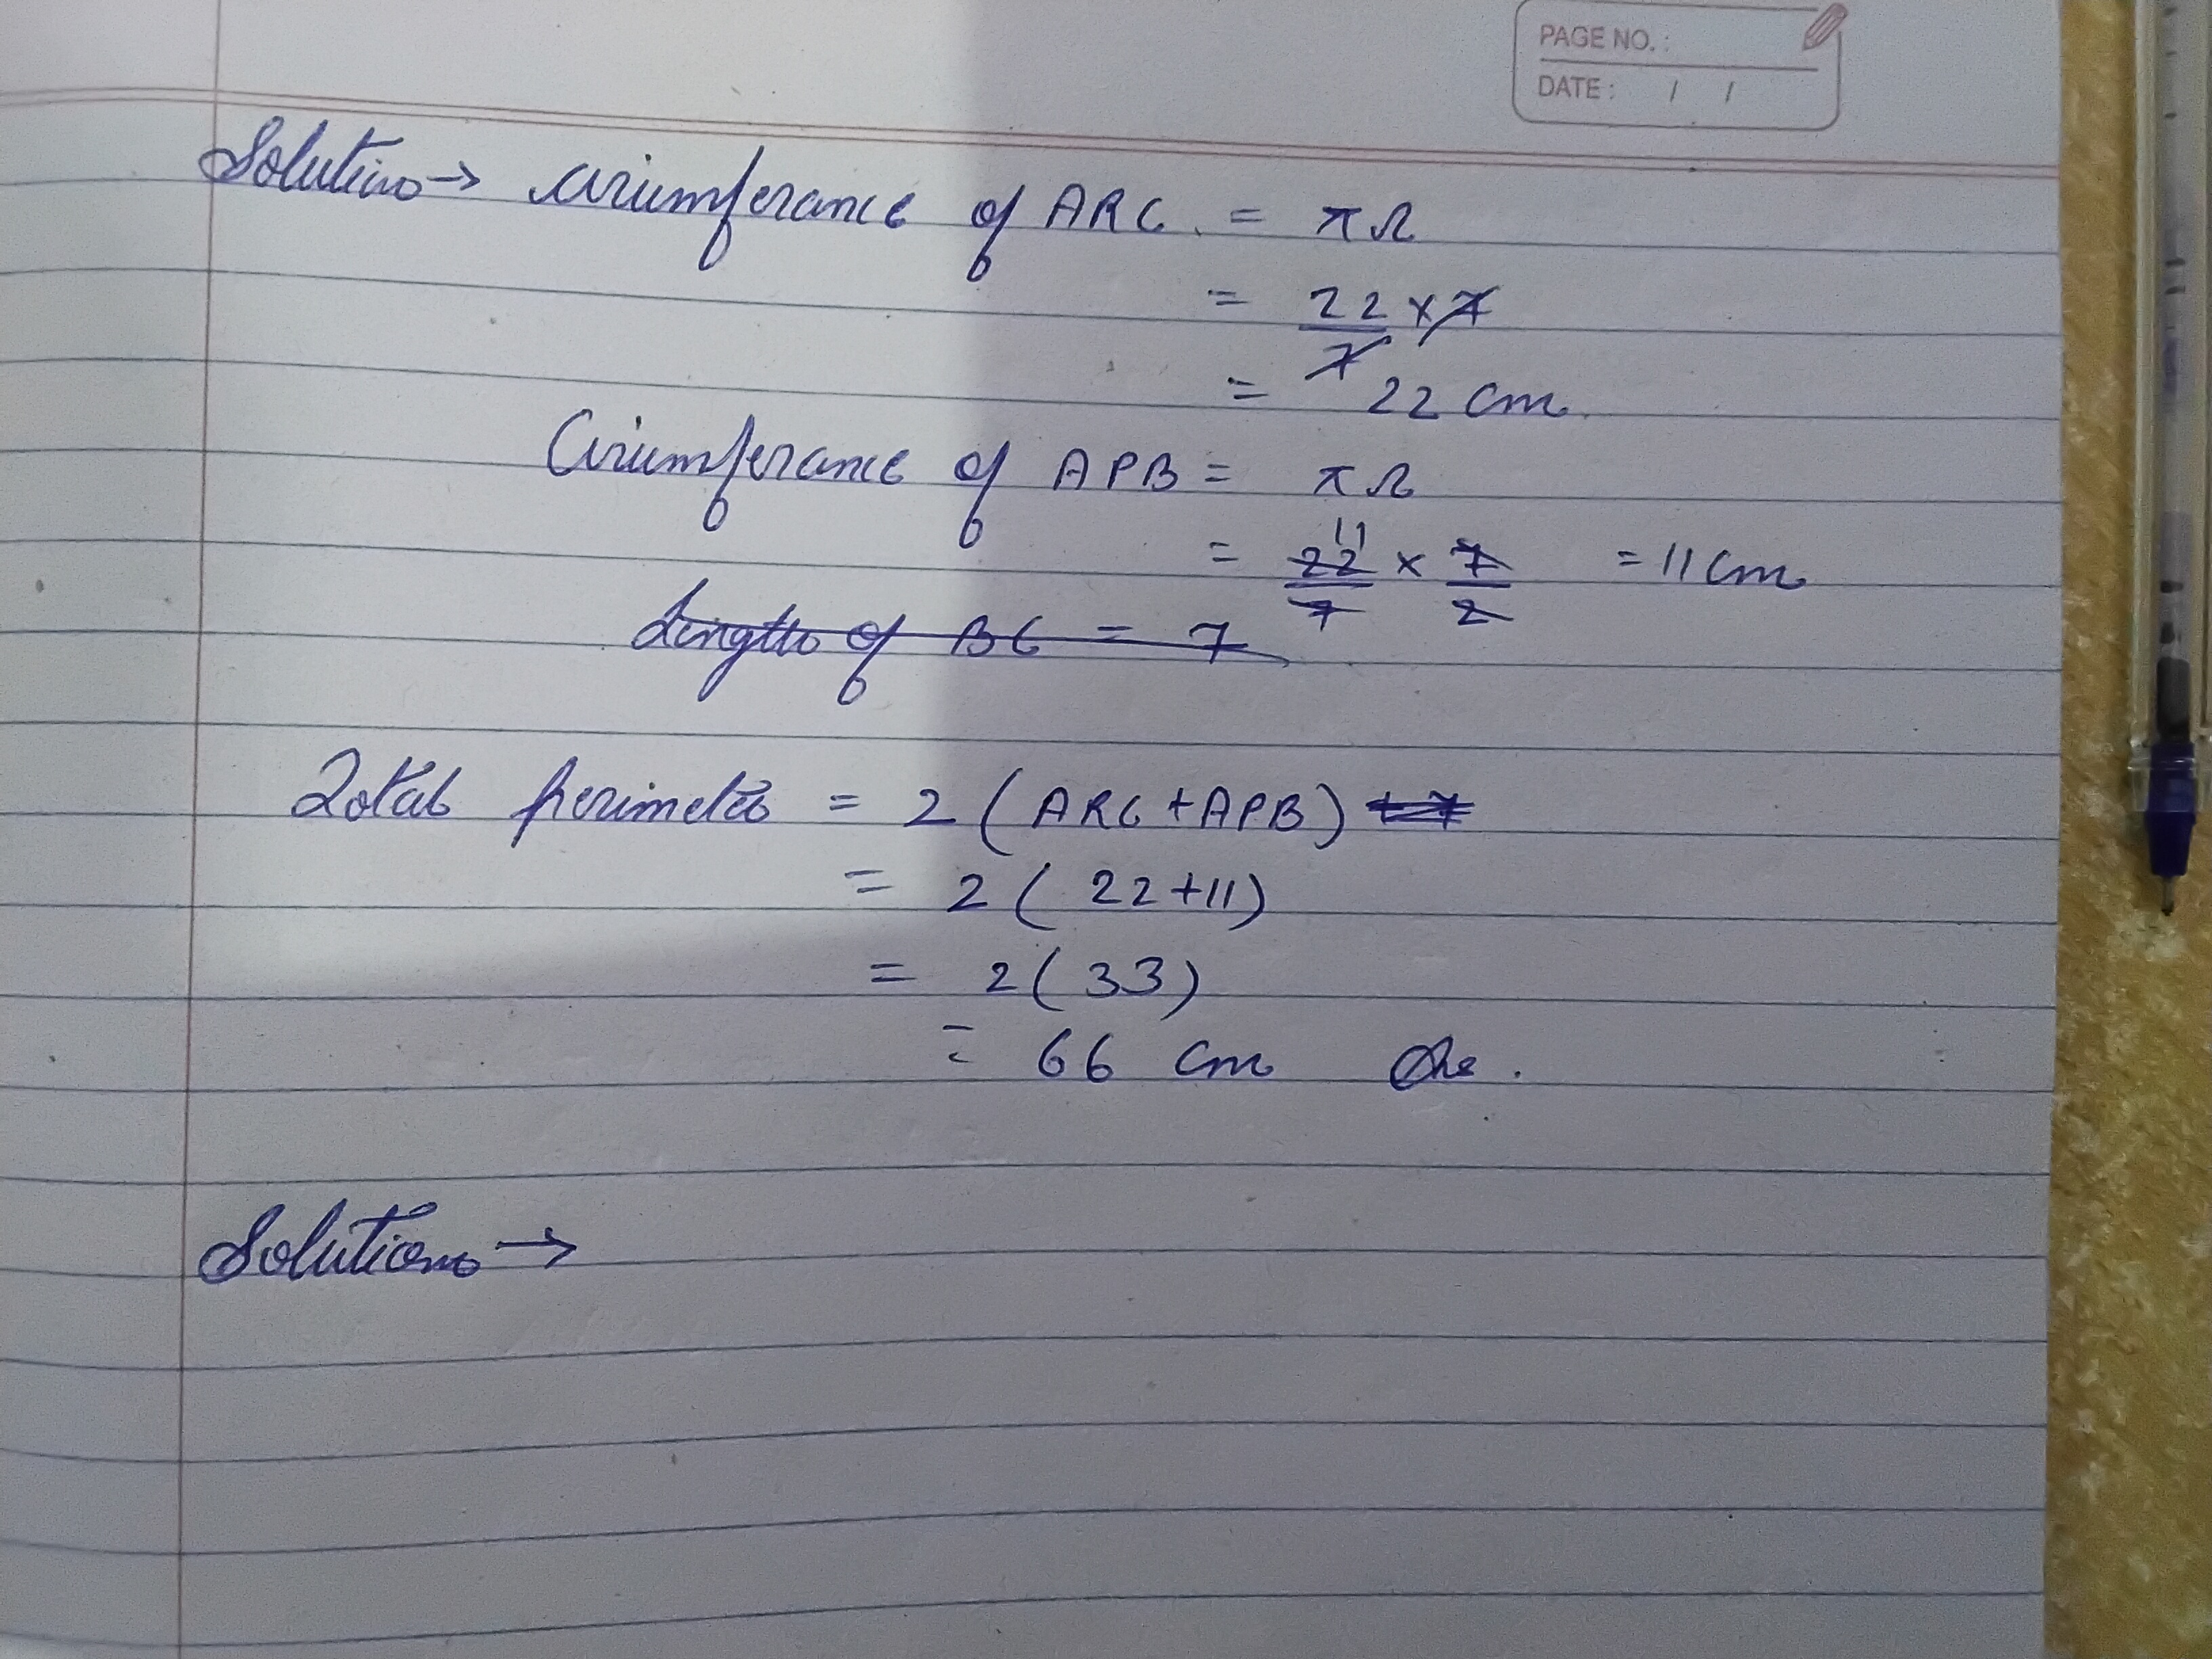 PAGE NO. :
DATE : / /
Solution → circumferance of ARC = πr
= 22/7 × 7
= 22 cm
Circumferance of APB = πr
= 22/7 × 7/2 11 = 11 cm
Length of BC = 7
Total perimeter = 2 (ARC + APB) + 7
= 2 ( 22 + 11)
= 2 ( 33)
= 66 cm
Solution →